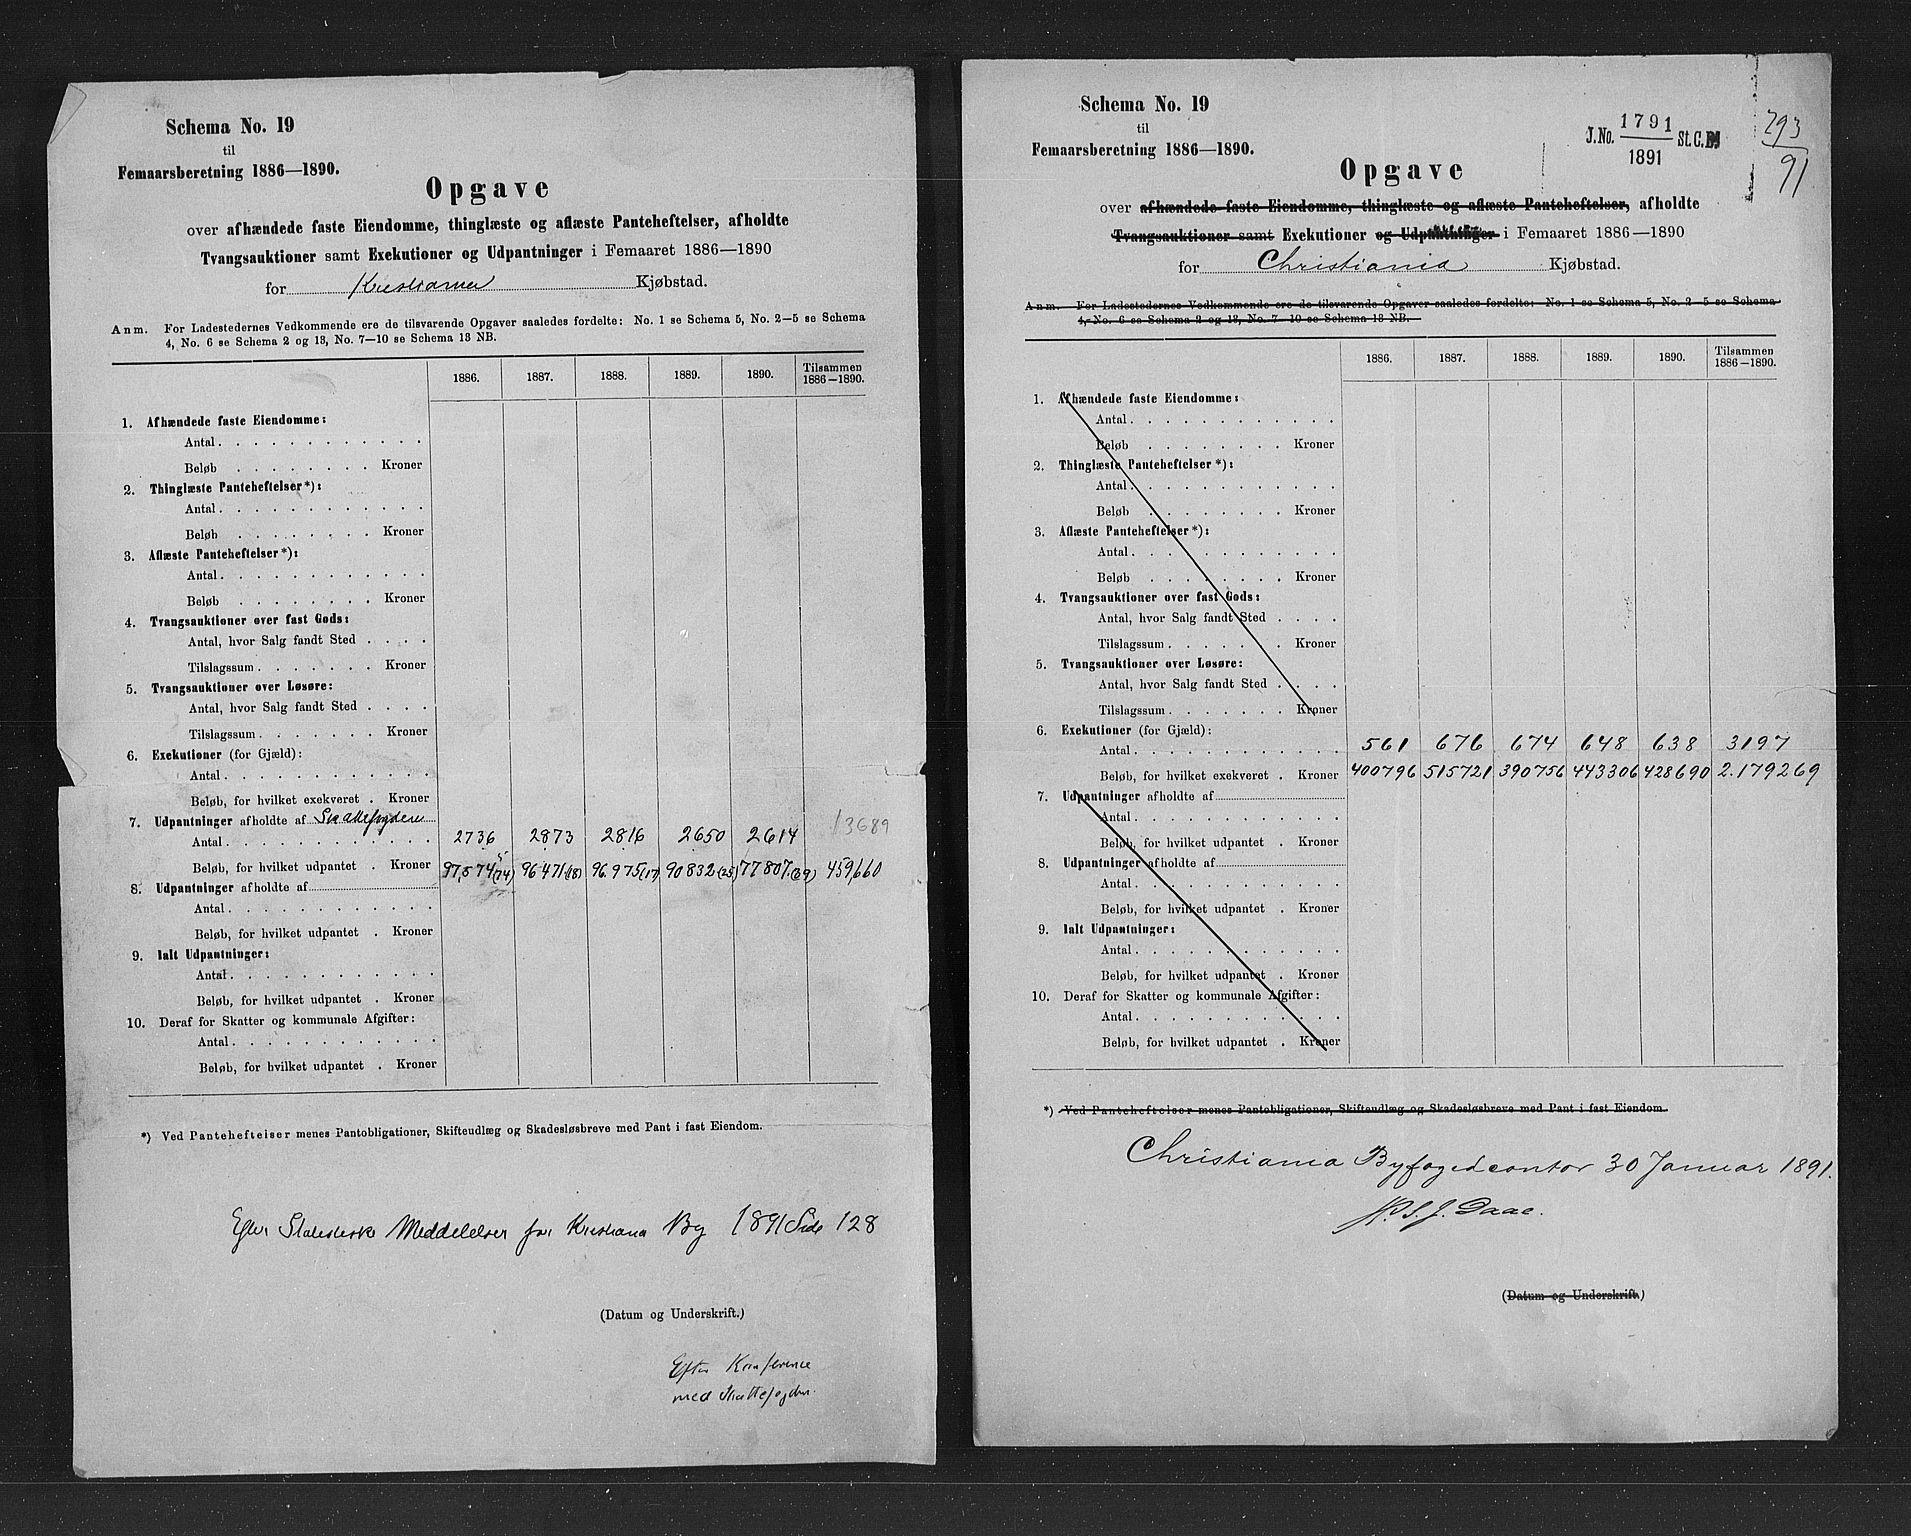 Schema No. 19
til
Femaarsberetning 1886—1890.
Opgave
over afhændede faste Eiendomme, thinglæste og aflæste Panteheftelser, afholdte
Tvangsauktioner samt Exekutioner og Udpantninger i Femaaret 1886—1890
for Kristiania Kjøbstad.
Anm. For Ladestedernes Vedkommende ere de tilsvarende Opgaver saaledes fordelte: No. 1 se Schema 5, No. 2—5 se Schema
4, No. 6 se Schema 2 og 13, No. 7—10 se Schema 13 NB.
1886. 1887. 1888. 1889. 1890. Tilsammen 1886—1890.
1. Afhændede faste Eiendomme:
Antal
Beløb Kroner
2. Thinglæste Panteheftelser*):
Antal
Beløb Kroner
3. Aflæste Panteheftelser*):
Antal
Beløb Kroner
4. Tvangsauktioner over fast Gods:
Antal, hvor Salg fandt Sted
Tilslagssum Kroner
5. Tvangsauktioner over Løsøre:
Antal, hvor Salg fandt Sted
Tilslagssum Kroner
6. Exekutioner (for Gjæld):
Antal
Beløb, for hvilket exekveret Kroner
7. Udpantninger afholdte af Skattefogden
Antal 2736 2873 2816 2650 2614 13689
Beløb, for hvilket udpantet Kroner 97,574 (74) 96471 (18) 96.975 (17) 90832 (25) 77807. (39) 459,660
8. Udpantninger afholdte af
Antal
Beløb, for hvilket udpantet Kroner
9. Ialt Udpantninger:
Antal
Beløb, for hvilket udpantet Kroner
10. Deraf for Skatter og kommunale Afgifter:
Antal
Beløb, for hvilket udpantet Kroner
*) Ved Panteheftelser menes Pantobligationer, Skifteudlæg og Skadesløsbreve med Pant i fast Eiendom.
Efter Statistiske Meddelelser for Kristiania By 1891 Side 128
(Datum og Underskrift.)
Efter Konference
med Skattefogden.
Schema No. 19
til
Femaarsberetning 1886—1890.
J. No. 1791/1891 St. C. B.
293/91
Opgave
over afhændede faste Eiendomme, thinglæste og aflæste Panteheftelser, afholdte
Tvangsauktioner samt Exekutioner og Udpantninger i Femaaret 1886—1890
for Christiania Kjøbstad.
Anm. For Ladestedernes Vedkommende ere de tilsvarende Opgaver saaledes fordelte: No. 1 se Schema 5, No. 2—5 se Schema
4, No. 6 se Schema 2 og 13, No. 7—10 se Schema 13 NB.
1886. 1887. 1888. 1889. 1890. Tilsammen 1886—1890.
1. Afhændede faste Eiendomme:
Antal
Beløb Kroner
2. Thinglæste Panteheftelser*):
Antal
Beløb Kroner
3. Aflæste Panteheftelser*):
Antal
Beløb Kroner
4. Tvangsauktioner over fast Gods:
Antal, hvor Salg fandt Sted
Tilslagssum Kroner
5. Tvangsauktioner over Løsøre:
Antal, hvor Salg fandt Sted
Tilslagssum Kroner
6. Exekutioner (for Gjæld):
Antal 561 676 674 648 638 3197
Beløb, for hvilket exekveret Kroner 400796 515721 390756 443306 428690 2.179269
7. Udpantninger afholdte af
Antal
Beløb, for hvilket udpantet Kroner
8. Udpantninger afholdte af
Antal
Beløb, for hvilket udpantet Kroner
9. Ialt Udpantninger:
Antal
Beløb, for hvilket udpantet Kroner
10. Deraf for Skatter og kommunale Afgifter:
Antal
Beløb, for hvilket udpantet Kroner
*) Ved Panteheftelser menes Pantobligationer, Skifteudlæg og Skadesløsbreve med Pant i fast Eiendom.
Christiania Byfogedcontor 30 Januar 1891.
Daae.
(Datum og Underskrift.)